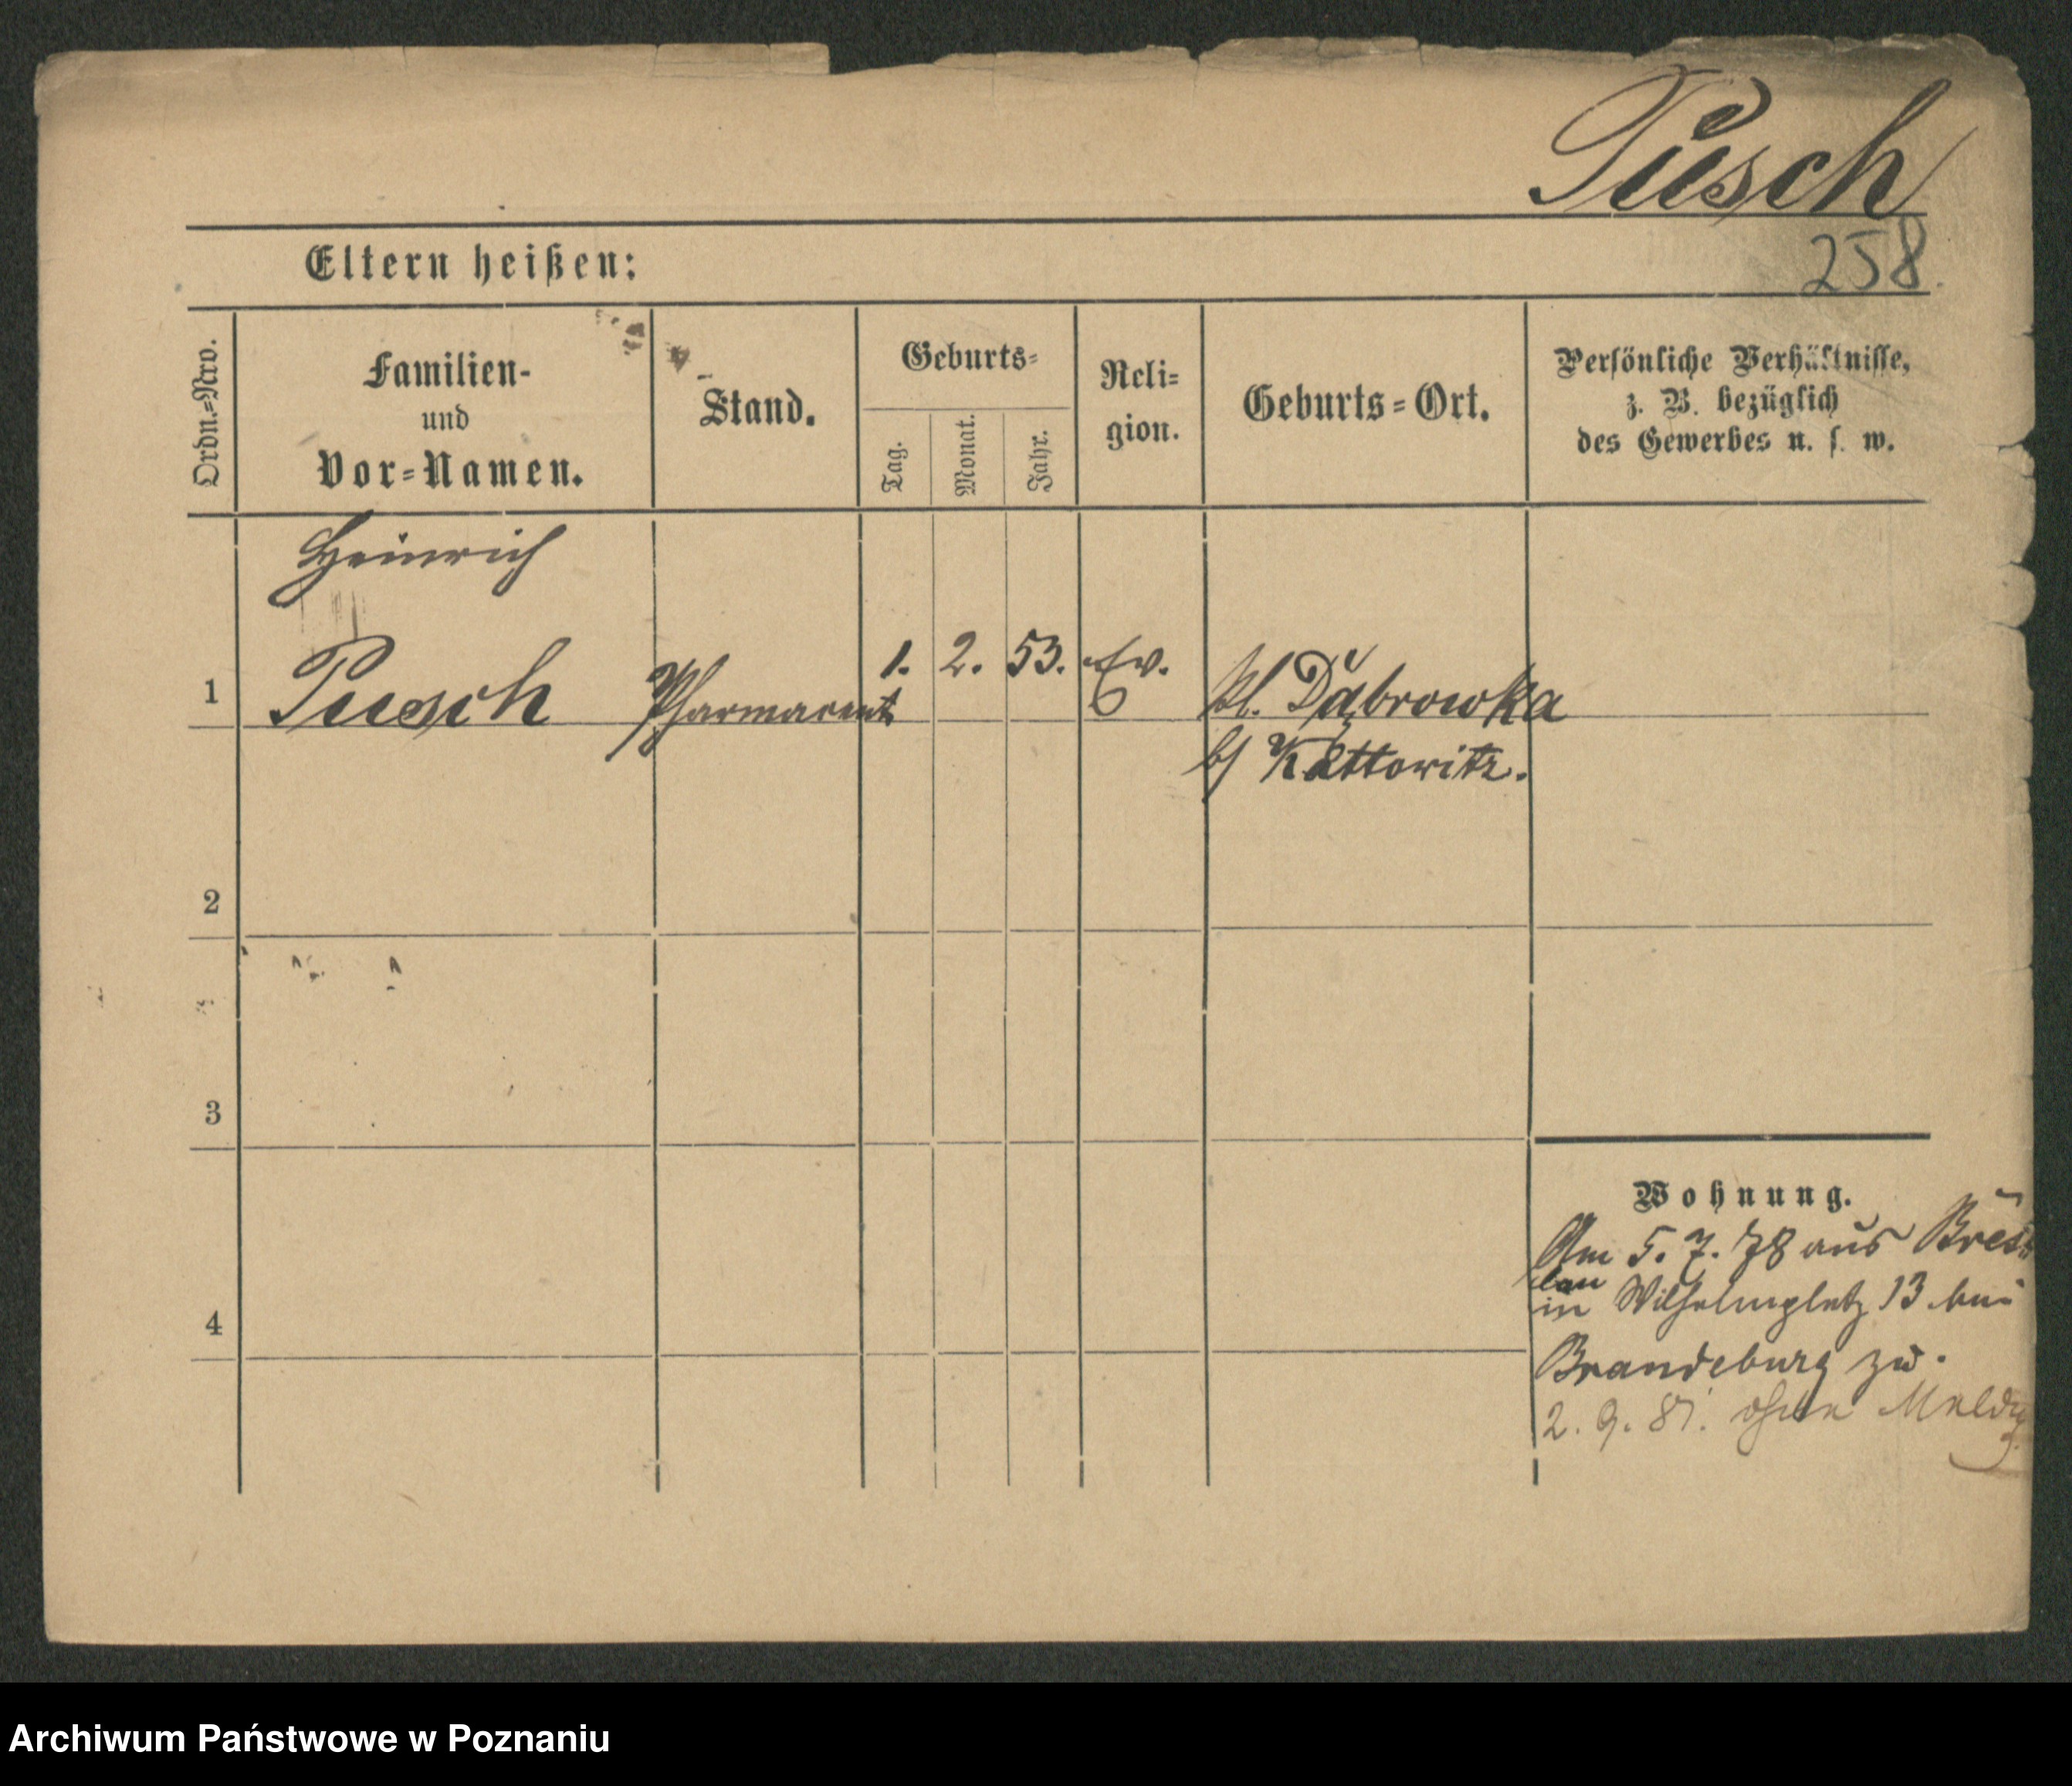 Pusch
258.
Eltern heißen:
Ordn.=Nro.
Familien-
und
Vor=Namen.
Stand.
Geburts=
Tag.
Monat.
Jahr.
Reli=
gion.
Geburts=Ort.
Persönliche Verhältnisse,
z. B. bezüglich
des Gewerbes u. s. w.
Heinrich
1 Pusch Pharmaceut 1. 2. 53. Ev. Kl. Dąbrowka
b/ Kattowitz.
2
3
4
Wohnung.
Am 5. 7. 78 aus Bres
lau
in Wilhelmplatz 13 bei
Brandeburg zu.
2. 9. 81. ohne Meldg
Archiwum Państwowe w Poznaniu